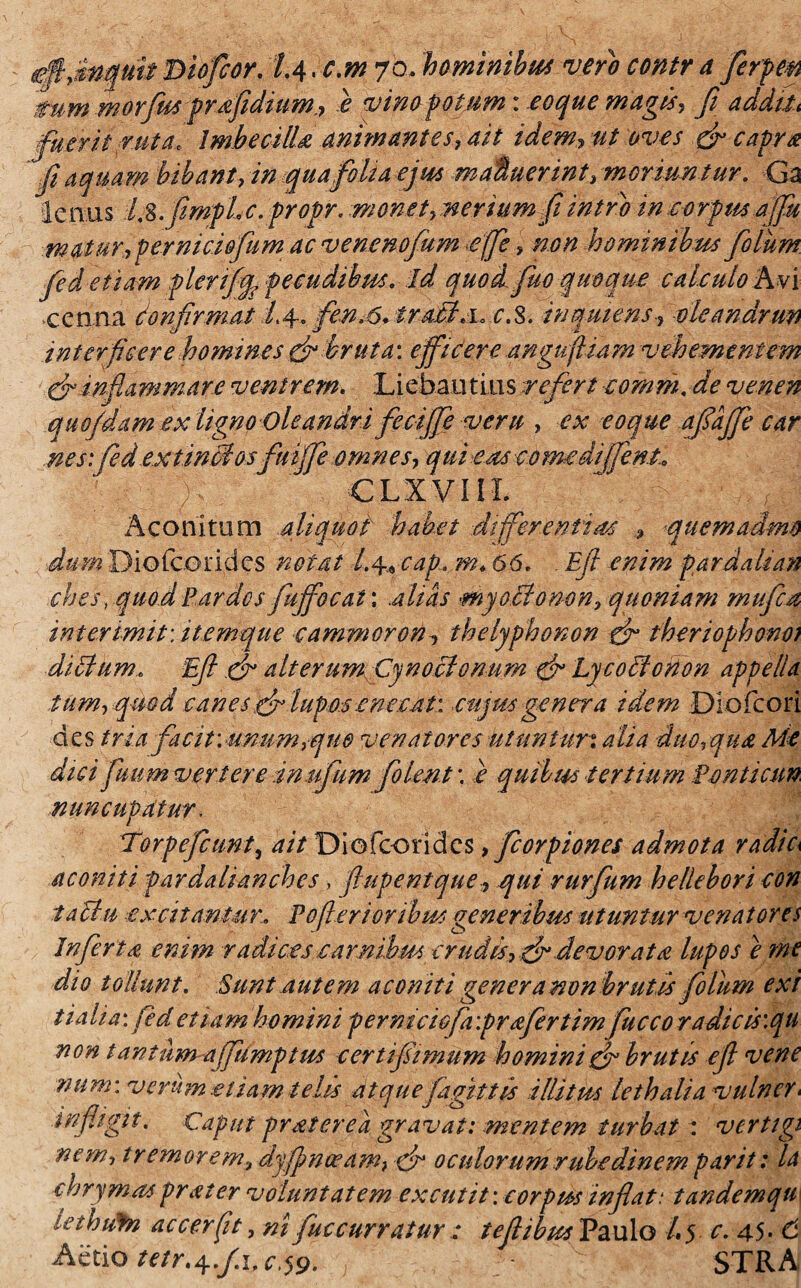 est, inquit Dioscor. l.4. c.m 70. hominibus vero contra serpen
tum morsus præsidium, è vino potum: eoque magis, si additi
fuerit ruta. Imbecillæ animantes, ait idem, ut oves & capræ
si aquam bibant, in qua folia ejus maduerint, moriuntur. Ga
lenus l.8. simpl. c. propr. monet, nerium si intrò in corpus assu
matur, perniciosum ac venenosum esse, non hominibus solùm
sed etiam plerisq; pecudibus. Id quod suo quoque calculo Avi
cenna confirmat l.4. fen.6. tract.1. c.8. inquiens, oleandrum
interficere homines & bruta: efficere angustiam vehementem
& inflammare ventrem. Liebautius refert comm. de venen
quosdam ex ligno Oleandri fecisse veru, ex eoque assâsse car
nes: sed extinctos fuisse omnes, qui eas comedissent.
CLXVIII.
Aconitum aliquot habet differentias, quemadmo
dum Dioscorides notat l.4. cap. m. 66. Est enim pardalian
ches, quod Pardos suffocat: aliàs myoctonon, quoniam muscæ
interimit: itemque cammoron, thelyphonon & theriophonon
dictum. Est & alterum Cynoctonum & Lycoctonon appella
tum, quod canes & lupos enecat: cujus genera idem Dioscori
des tria facit: unum, quo venatores utuntur: alia duo, quæ Me
dici suum vertere in usum solent: è quibus tertium Ponticum
nuncupatur.
Torpescunt, ait Dioscorides, scorpiones admota radic
aconiti pardalianches, stupentque, qui rursum hellebori con
tactu excitantur. Posterioribus generibus utuntur venatores
Insertæ enim radices carnibus crudis, & devoratæ lupos è me
dio tollunt. Sunt autem aconiti genera non brutis solùm exi
tialia: sed etiam homini perniciosa: præsertim succo radicis: qu
non tantùm assumptus certissimum homini & brutis est vene
num: verùm etiam telis atque sagittis illitus lethalia vulner
infligit. Caput prætereà gravat: mentem turbat: vertigi
nem, tremorem, dyspnœam, & oculorum rubedinem parit: la
chrymas præter voluntatem excutit: corpus inflat: tandemqu
lethum accersit, ni succurratur: testibus Paulo l.5 c. 45. &
Aëtio tetr.4.s.1. c.59. STRA